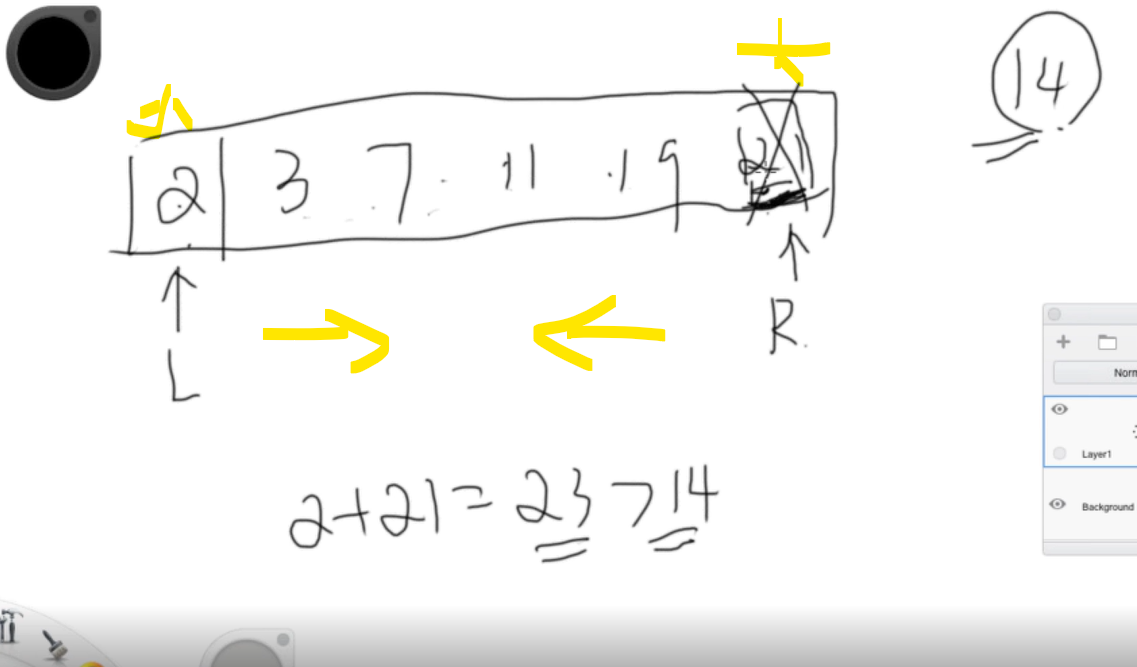 14
2 3 7 11 19 21
L R
2+21=23>14
Norm
Layer1
Background